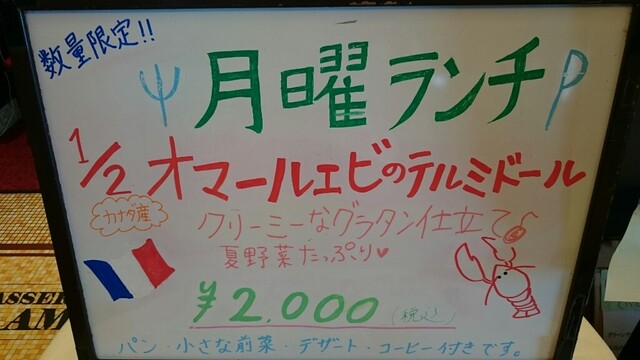 数量限定!!
月曜ランチ
1/2 オマールエビのテルミドール
カナダ産
クリーミーなグラタン仕立て
夏野菜たっぷり♥
¥2,000 (税込)
パン・小さな前菜・デザート・コーヒー付きです。